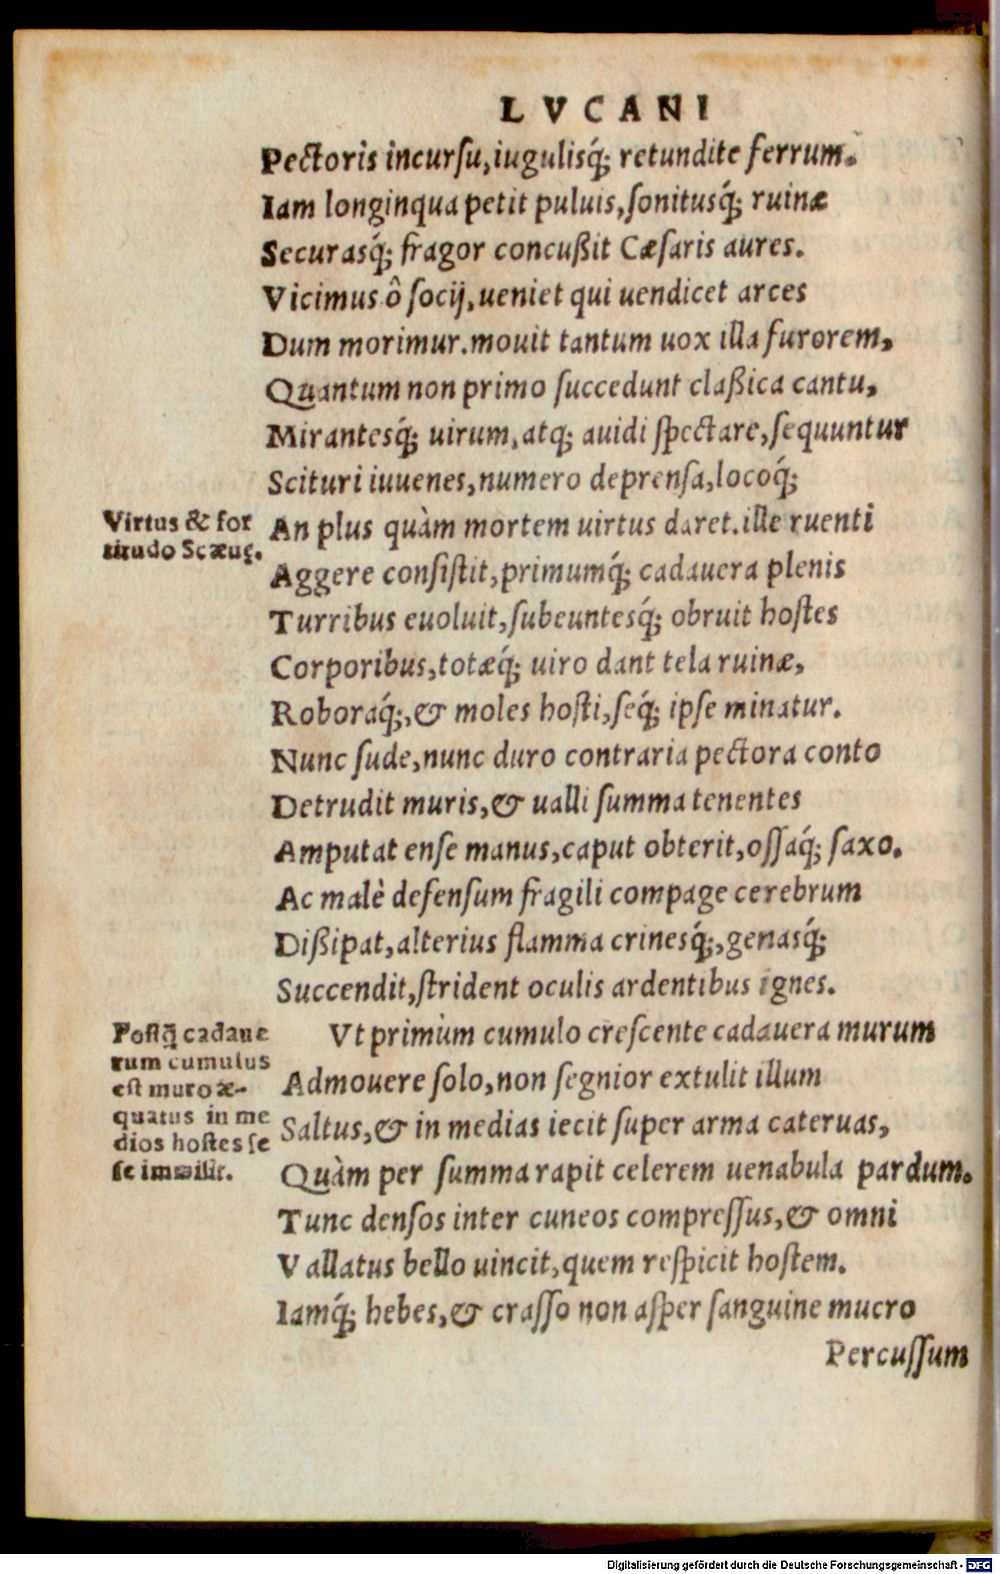 LVCANI
Pectoris incursu, iugulisq́; retundite ferrum.
Iam longinqua petit puluis, sonitusq́; ruinæ
Securasq́; fragor concußit Cæsaris aures.
Vicimus ô socij, ueniet qui uendicet arces
Dum morimur. mouit tantum uox illa furorem,
Quantum non primo succedunt claßica cantu,
Mirantesq́; uirum, atq; auidi spectare, sequuntur
Scituri iuuenes, numero deprensa, locoq́;
Virtus & for
titudo Scæuę.
An plus quàm mortem uirtus daret. ille ruenti
Aggere consistit, primumq́; cadauera plenis
Turribus euoluit, subeuntesq́; obruit hostes
Corporibus, totæq́; uiro dant tela ruinæ,
Roboraq́;, & moles hosti, seq́; ipse minatur.
Nunc sude, nunc duro contraria pectora conto
Detrudit muris, & ualli summa tenentes
Amputat ense manus, caput obterit, ossaq́; saxo.
Ac malè defensum fragili compage cerebrum
Dißipat, alterius flamma crinesq́;, genasq́;
Succendit, strident oculis ardentibus ignes.
Postq̃ cadaue
rum cumulus
est muro æ-
quatus in me
dios hostes se
se immisit.
Vt primùm cumulo crescente cadauera murum
Admouere solo, non segnior extulit illum
Saltus, & in medias iecit super arma cateruas,
Quàm per summa rapit celerem uenabula pardum.
Tunc densos inter cuneos compressus, & omni
Vallatus bello uincit, quem respicit hostem.
Iamq́; hebes, & crasso non asper sanguine mucro
Percussum
Digitalisierung gefördert durch die Deutsche Forschungsgemeinschaft - DFG